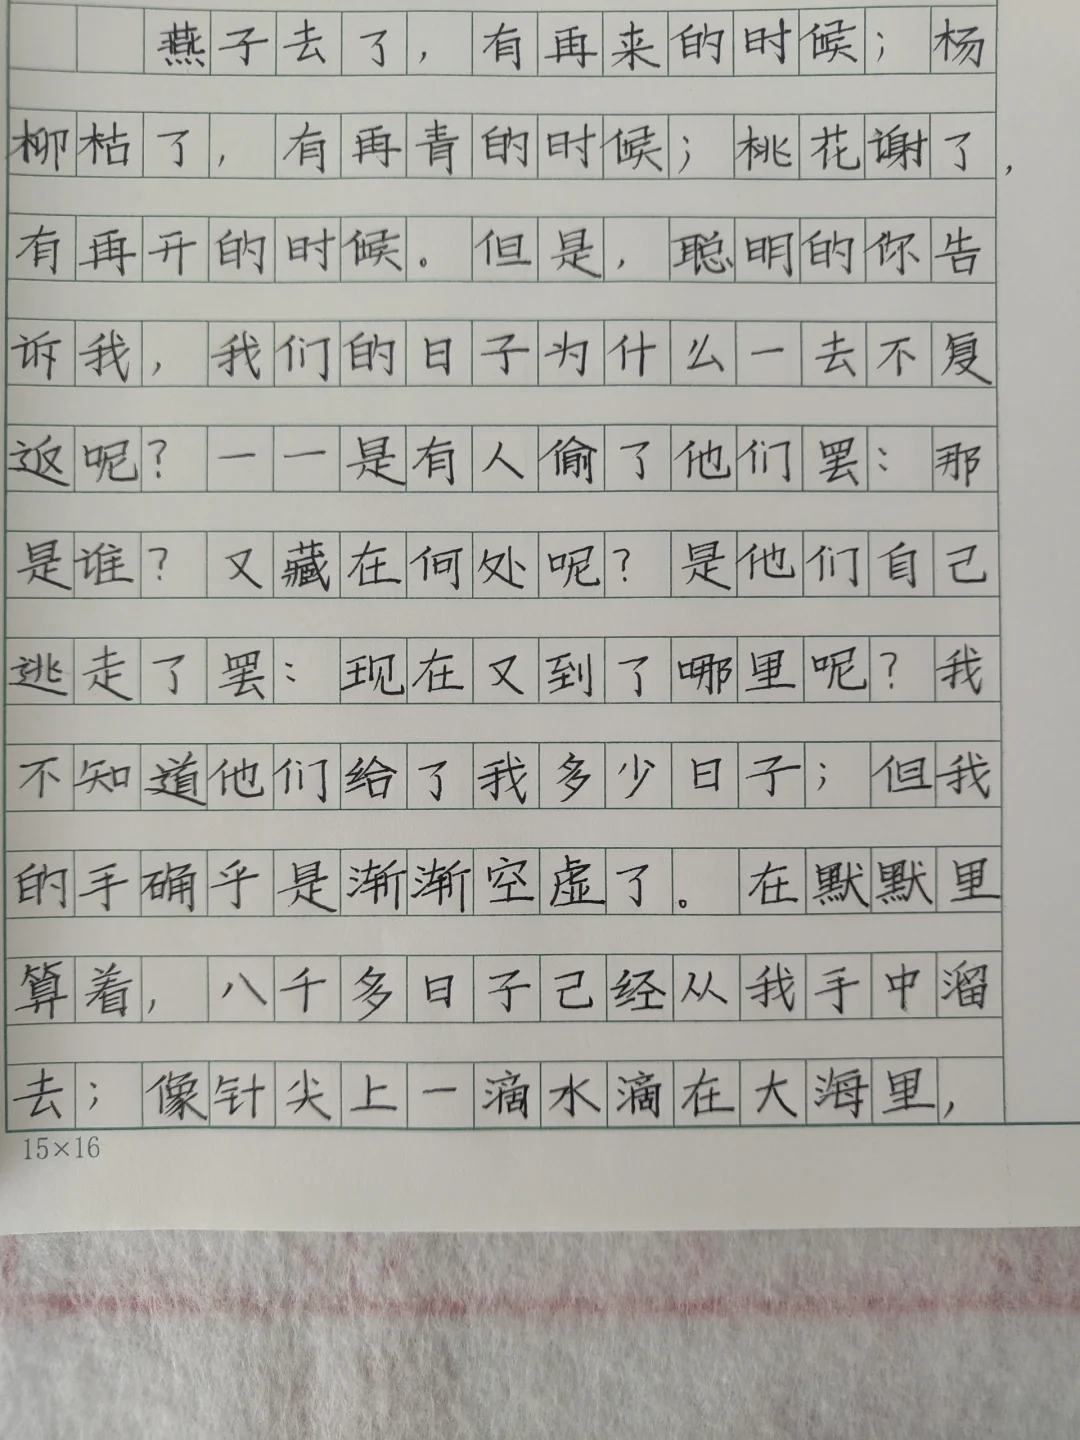 燕子去了，有再来的时候；杨
柳枯了，有再青的时候；桃花谢了，
有再开的时候。但是，聪明的你告
诉我，我们的日子为什么一去不复
返呢？一一是有人偷了他们罢：那
是谁？又藏在何处呢？是他们自己
逃走了罢：现在又到了哪里呢？我
不知道他们给了我多少日子；但我
的手确乎是渐渐空虚了。在默默里
算着，八千多日子己经从我手中溜
去；像针尖上一滴水滴在大海里，
15×16